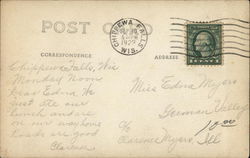 POST CARD
CORRESPONDENCE
ADDRESS
CHIPPEWA FALLS
1922
WIS.
Chippewa Falls, Wis
Monday Noon
Dear Edna We
just ate our
lunch and are
on our way home
Loads are good
Clarence
Miss Edna Myers
German Valley
c/o
Clarence Myers, Ill